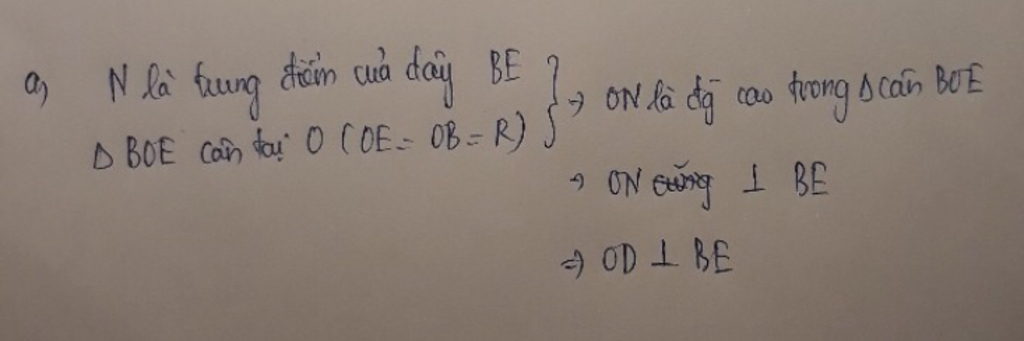 a, N là trung điểm của dây BE
Δ BOE cân tại O (OE = OB = R) } ⇒ ON là đg cao trong Δ cân BOE
⇒ ON ⊥ BE
⇒ OD ⊥ BE